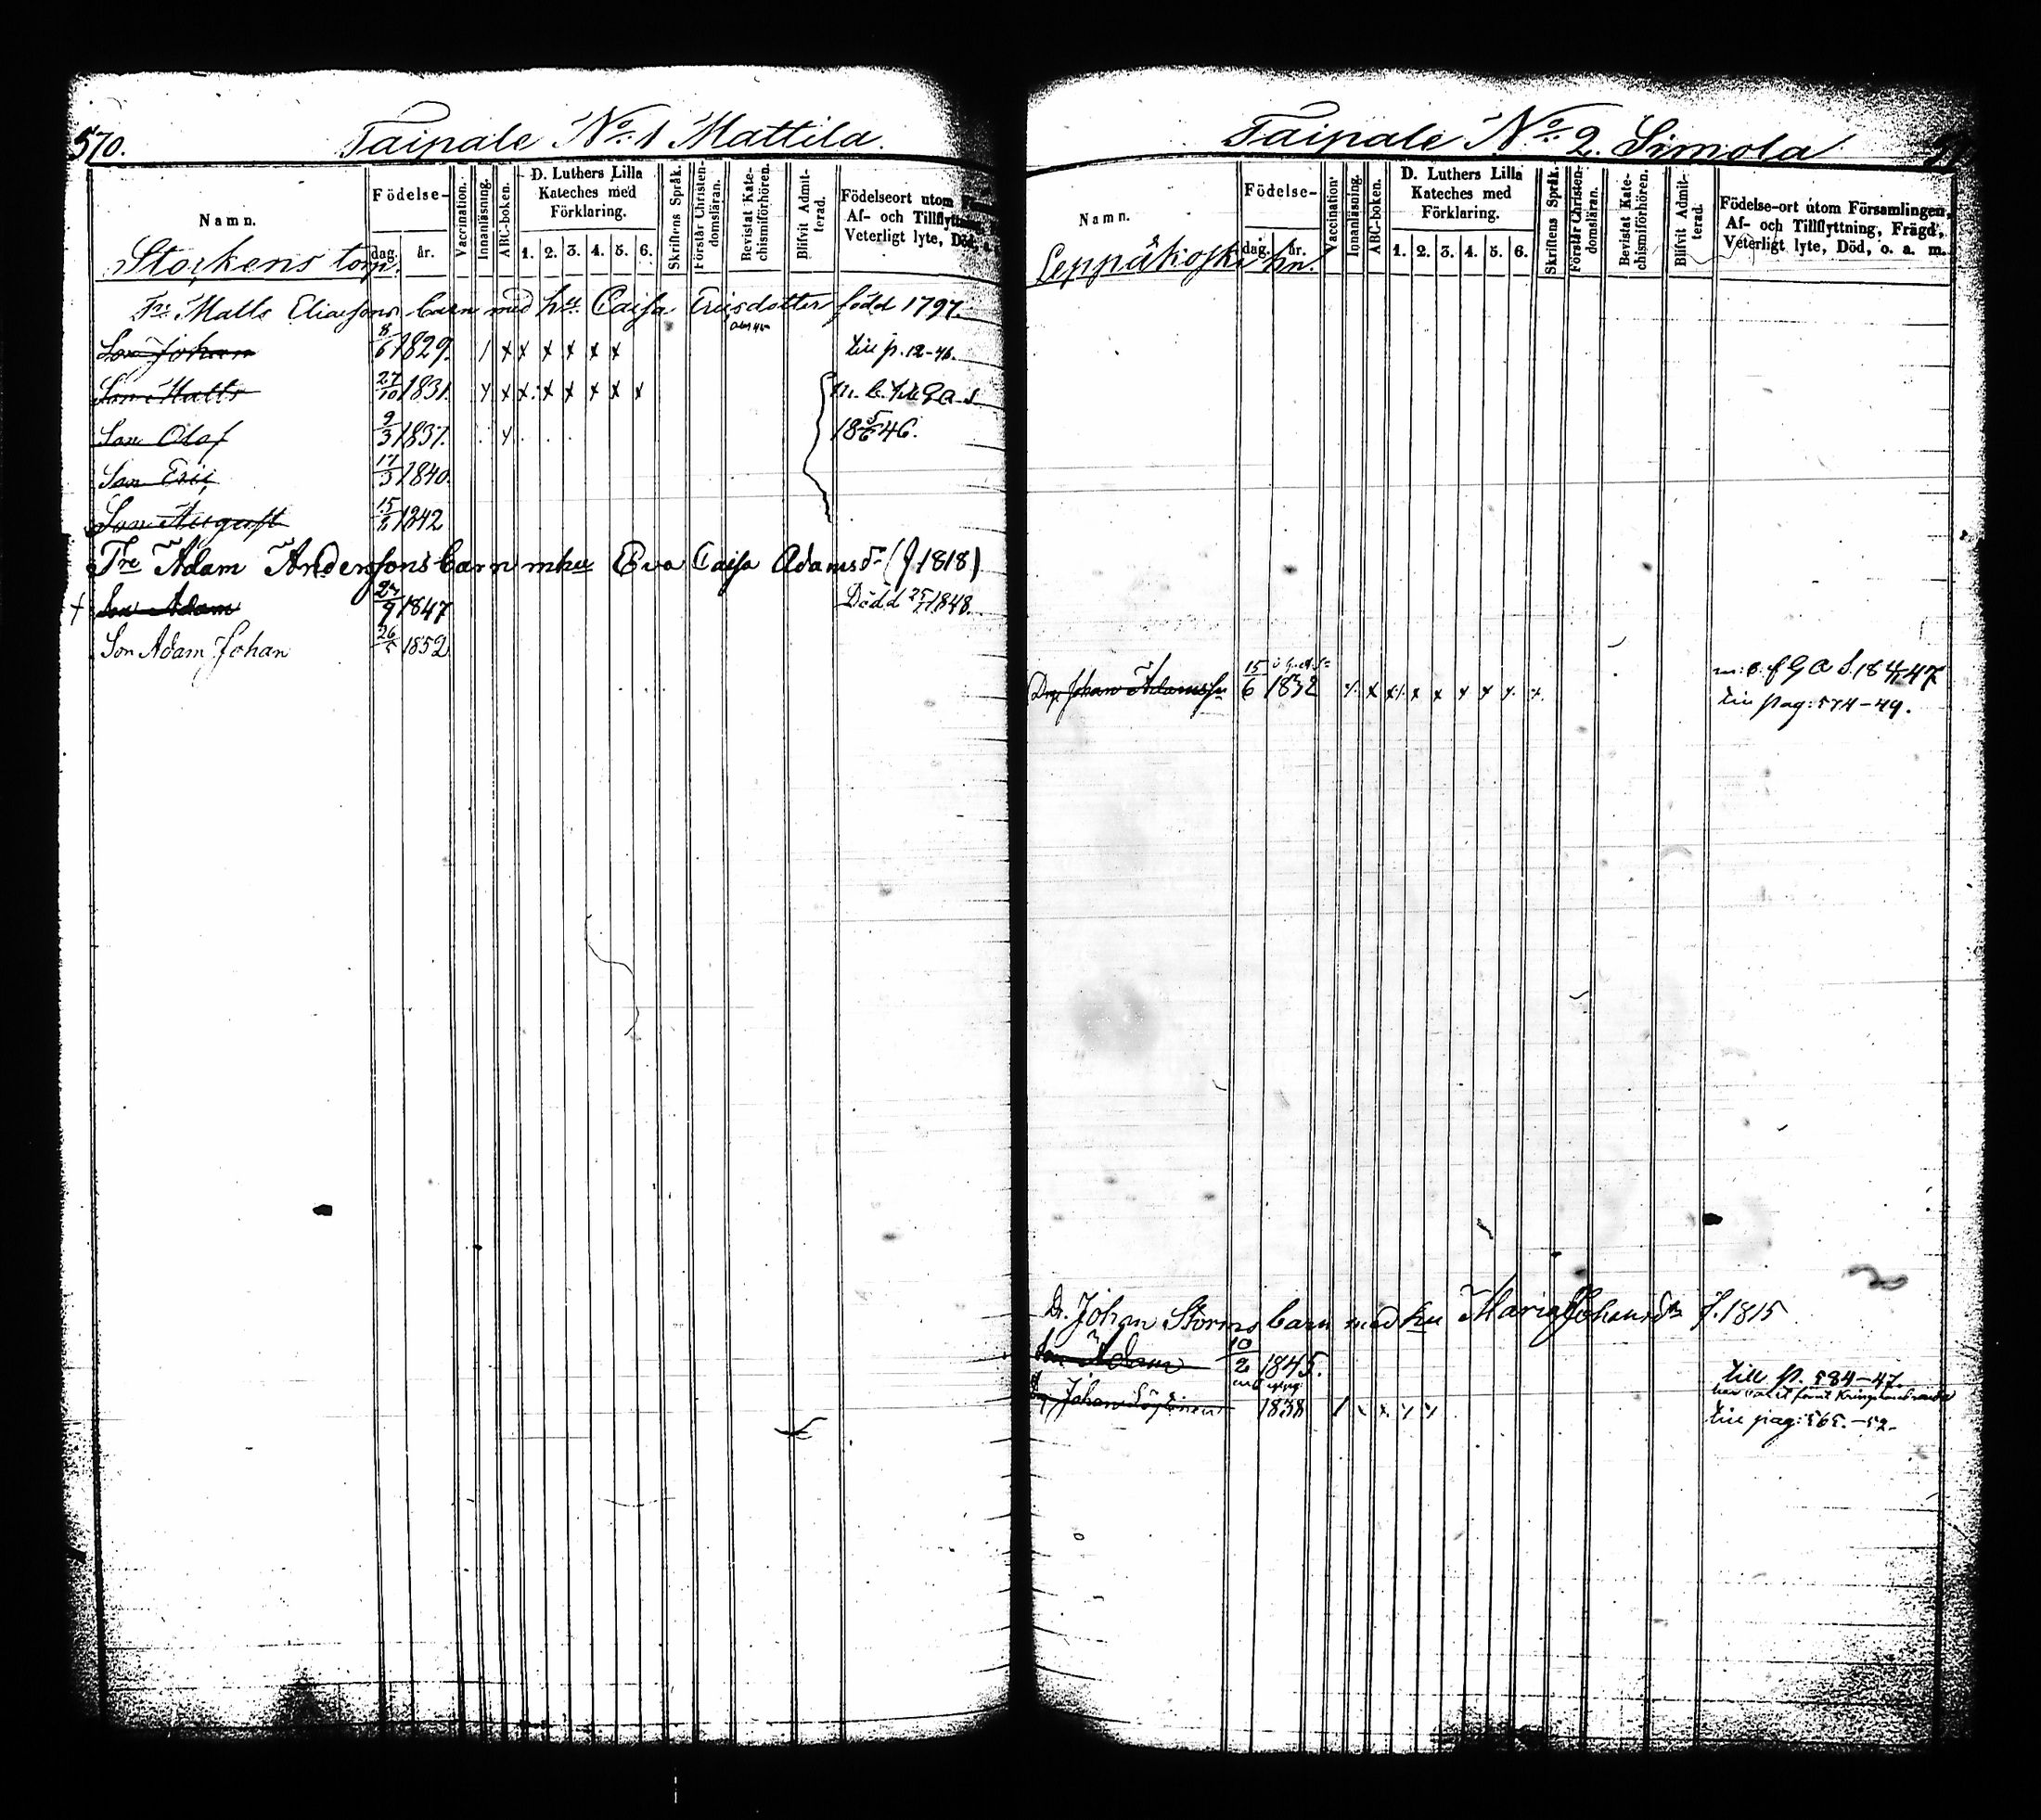 570.
Taipale No. 1 Mattila.
Namn.
Födelse-
dag.
år.
Vaccination.
Innanläsning.
ABC-boken.
D. Luthers Lilla
Kateches med
Förklaring.
1. 2. 3. 4. 5. 6.
Skriftens Språk.
Förstår Christen-
domsläran.
Bevistat Kate-
chismiförhören.
Blifvit Admit-
terad.
Födelseort utom
Af- och Tillflyttning,
Veterligt lyte, Död,
Storkens torp.
Tre Matts Eliassons barn med hu Caisa Ericsdotter född 1797.
Son Johan 8/6 1829. / x x x x x x till p. 12-46.
Son Matts 27/10 1831. x x x x x x x x
Son Olof 9/3 1837. 18 5/6 46.
Son Eric 17/3 1840.
Son August 1842
Tre Adam Anderssons barn m hu Eva Caisa Adamsdr (f 1818)
Son Adam 1847 Död d 1848.
Son Adam Johan 26/5 1852
Taipale No. 2. Simola
Namn.
Födelse-
dag.
år.
Vaccination.
Innanläsning.
ABC-boken.
D. Luthers Lilla
Kateches med
Förklaring.
1. 2. 3. 4. 5. 6.
Skriftens Språk.
Förstår Christen-
domsläran.
Bevistat Kate-
chismiförhören.
Blifvit Admit-
terad.
Födelse-ort utom Församlingen,
Af- och Tillflyttning, Frägd,
Veterligt lyte, Död, o. a. m.
Leppäkoski hn.
Drg. Johan Adamsson 15/6 1832
till pag: 574-49.
Dr. Johan Storms barn med hu Maria Johansdr f. 1815
Son Adam 10/2 1845. till p. 584-47.
Johan 1838 till pag: 565.-52.